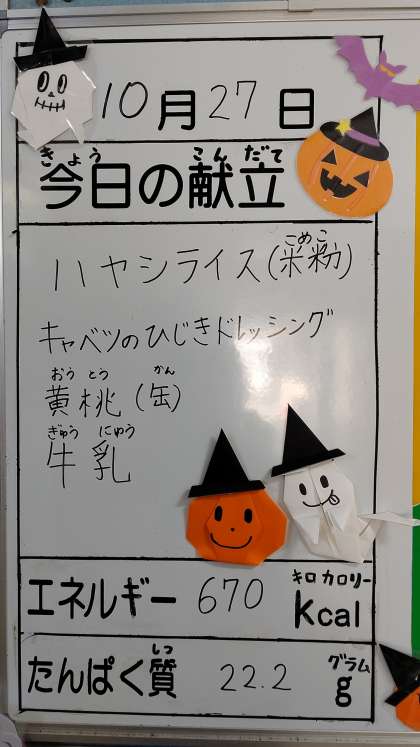 10月27日
きょう こんだて
今日の献立
こめこ
ハヤシライス(米粉)
キャベツのひじきドレッシング
おうとう かん
黄桃(缶)
ぎゅうにゅう
牛乳
キロカロリー
エネルギー 670 Kcal
しつ グラム
たんぱく質 22.2 g